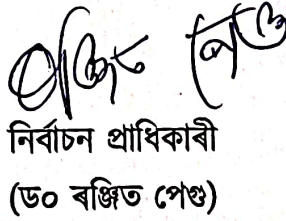 ৰঞ্জিত পেগু
নিৰ্বাচন প্ৰাধিকাৰী
(ড০ ৰঞ্জিত পেগু)